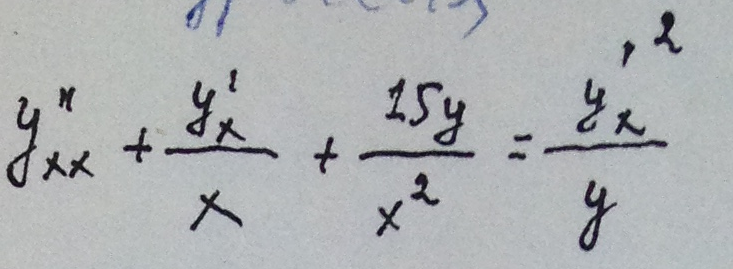 y''ₓₓ + y'ₓ/x + 15y/x² = y'ₓ²/y